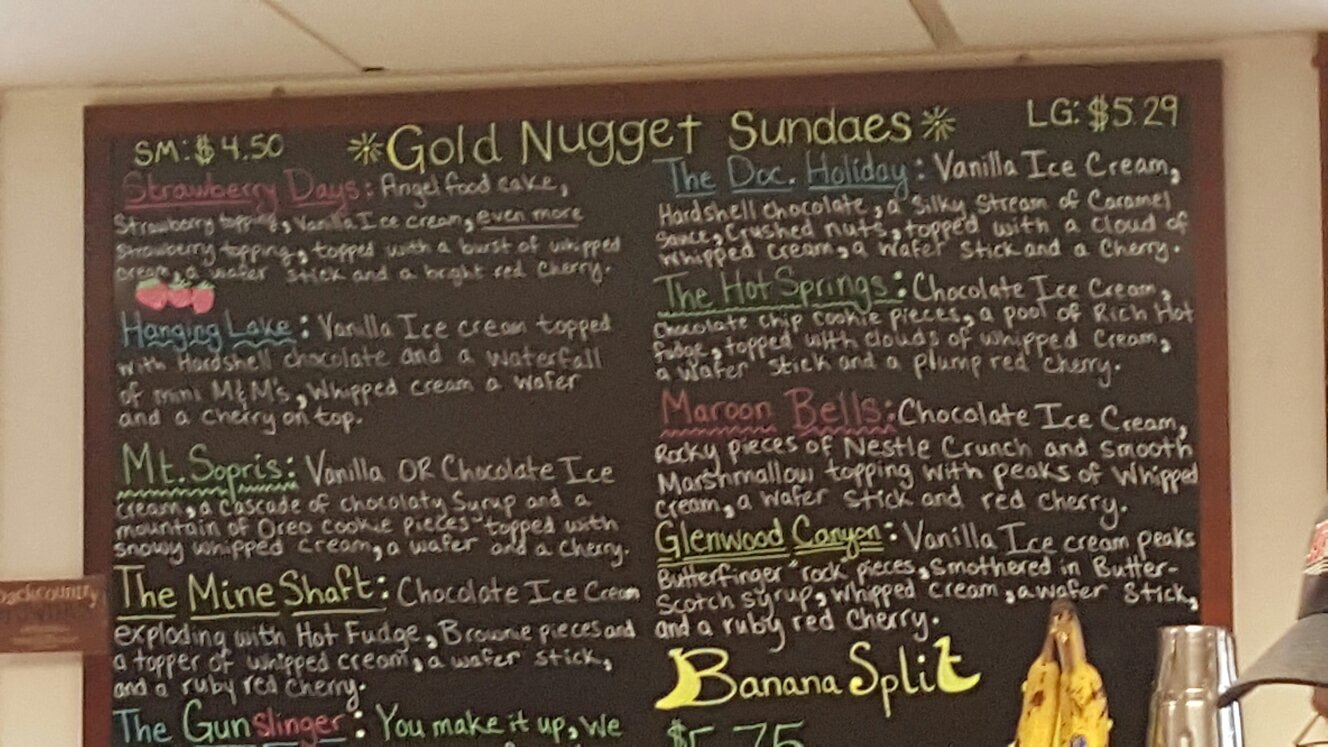 SM: $4.50 Gold Nugget Sundaes LG: $5.29
Strawberry Days: Angel food cake,
Strawberry topping, Vanilla Ice cream, even more
Strawberry topping, topped with a burst of whipped
cream, a wafer stick and a bright red cherry.
Hanging Lake: Vanilla Ice cream topped
with Hardshell chocolate and a waterfall
of mini M&M's, Whipped cream a wafer
and a cherry on top.
Mt. Sopris: Vanilla OR Chocolate Ice
cream, a cascade of chocolaty Syrup and a
mountain of Oreo cookie pieces topped with
snowy whipped cream, a wafer and a cherry.
The Mine Shaft: Chocolate Ice Cream
exploding with Hot Fudge, Brownie pieces and
a topper of whipped cream, a wafer stick,
and a ruby red cherry.
The Gunslinger: You make it up, we
The Doc. Holiday: Vanilla Ice Cream,
Hardshell chocolate, a Silky Stream of Caramel
sauce, Crushed nuts, topped with a Cloud of
whipped cream, a wafer stick and a Cherry.
The Hot Springs: Chocolate Ice Cream,
Chocolate chip cookie pieces, a pool of Rich Hot
Fudge, topped with clouds of whipped Cream,
a wafer stick and a plump red cherry.
Maroon Bells: Chocolate Ice Cream,
Rocky pieces of Nestle Crunch and Smooth
Marshmallow topping with peaks of Whipped
cream, a wafer stick and red cherry.
Glenwood Canyon: Vanilla Ice cream peaks
Butterfinger "rock" pieces, Smothered in Butter-
Scotch syrup, whipped cream, a wafer Stick,
and a ruby red cherry.
Banana Split
$5.75
backcountry